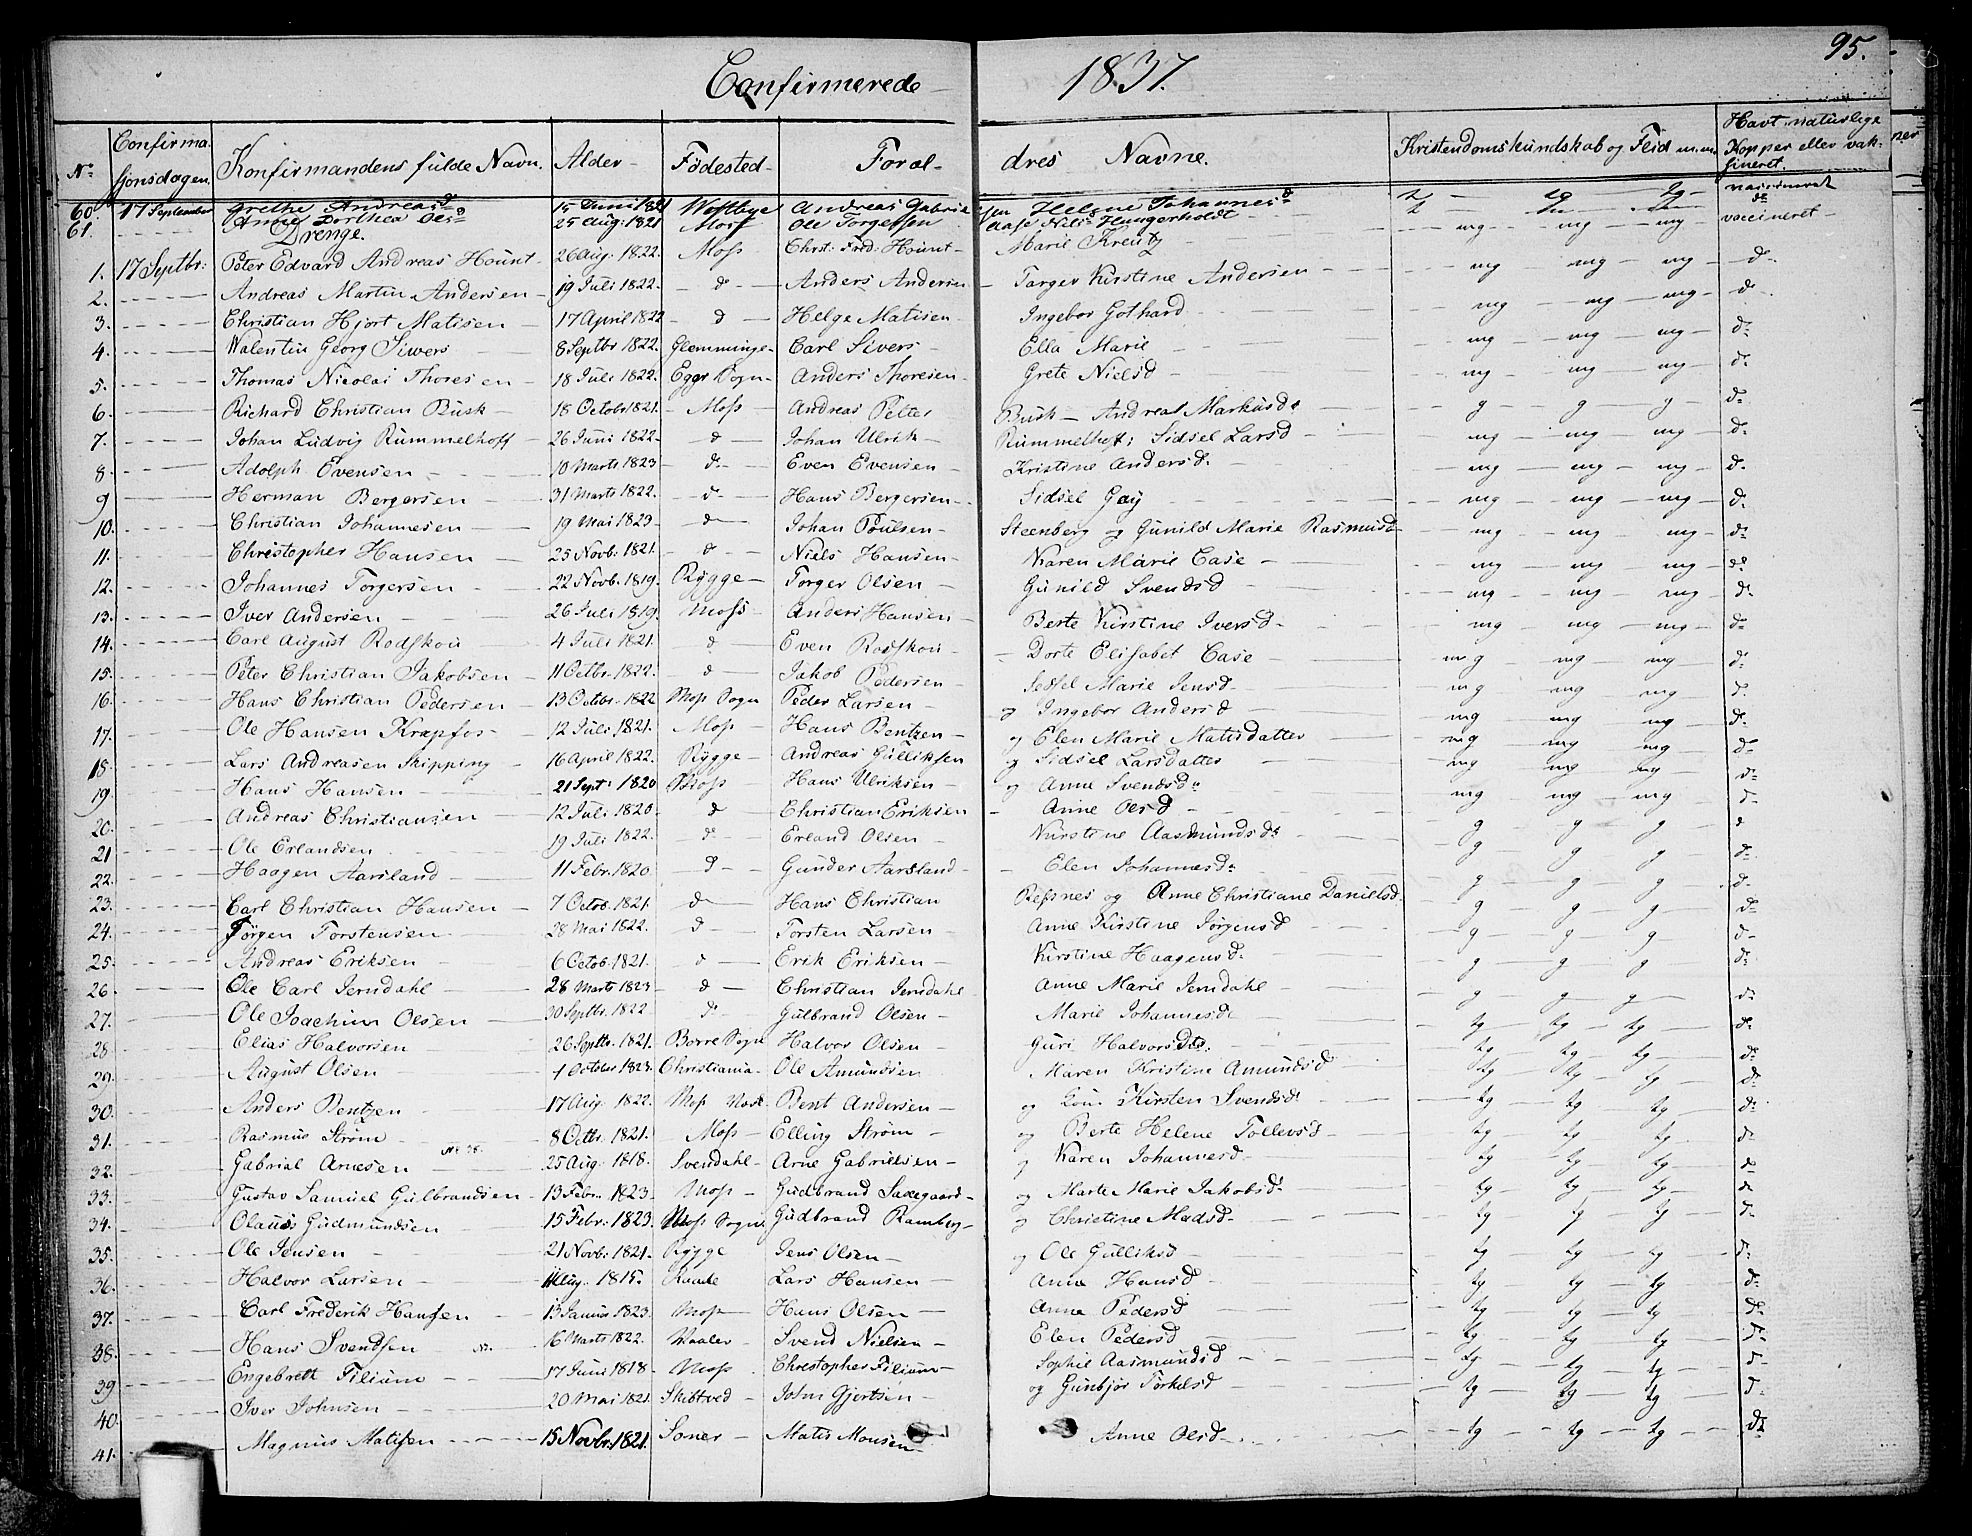 95.
Confirmerede 1837.
No Confirmasjonsdagen. Konfirmandens fulde Navn. Alder Fødested Foraldres Navne. Kristendomskundskab og Flid m.m. Havt naturlige Kopper eller vaksineret.
60 17 September Grethe Andreasd 15 Juni 1821 Andreas Gabrielsen Helene Johannesd
61. Anne Dorthea Olsd 25 Aug: 1821 Moss Ole Torgersen Aase Nilsd Hungerholdt mg mg mg vaccineret
Drenge.
1. 17 Septbr: Peter Edvard Andreas Hount 26 Aug. 1822. Moss Christ: Fred: Hount Marie Kreutz mg mg mg do
2. Andreas Martin Andersen 19 Juli 1822. do Anders Andersen Targer Kirstine Andersen mg mg mg do
3. Christian Hjort Matisen 17 April 1822 do Helge Matisen Ingebor Gothard mg mg mg do
4. Valentin Georg Siwers 8 Septbr 1822. Glemminge Carl Sivers Ella Marie mg mg mg do
5. Thomas Nicolai Thoresen 18 Juli 1822. Sogn Anders Thoresen Grete Nielsd g g g do
6. Richard Christian Busk 18 Octobr 1821. Moss Andreas Petter Busk Andrea Markusd mg mg mg do
7. Johan Ludvig Rummelhoff 26 Juni 1822. do Johan Ulrik Rummelhoff; Sidsel Larsd mg mg mg do
8. Adolph Evensen 10 Marts 1823 do Even Evensen Kristine Andersd mg mg mg do
9 Herman Bergersen 31 Marts 1822. do Hans Bergersen Sidsel Gay mg mg mg do
10. Christian Johannesen 19 Mai 1823 do Johan Poulsen Steenberg og Gunild Marie Rasmusd mg mg mg do
11. Christopher Hansen 25 Novb. 1821. do Niels Hansen Karen Marie Case mg mg mg do
12. Johannes Torgersen 22 Novb. 1819. Rygge Torger Olsen Gunild Svendsd mg mg mg do
13. Iver Andersen 26 Juli 1819. Moss Anders Hansen Berte Kirstine Iversd mg mg mg do
14. Carl August Rodskou 4 Juli 1821. do Even Rodskou Dorte Elisabet Case mg mg mg do
15. Peter Christian Jakobsen 11 Octbr. 1822. do Jakob Pedersen Marie Jensd mg mg mg do
16. Hans Christian Pedersen 13 Octbr. 1822 Moss Sogn Peder Larsen og Ingebor Andersd mg mg mg do
17. Ole Hansen Krapfos 12 Juli 1821. Moss Hans Bentzen og Elen Marie Matisdatter mg mg mg do
18. Lars Andreasen Skipping 16 April 1822. Rygge Andreas Gulliksen og Sidsel Larsdatter mg mg mg do
19. Hans Hansen 21 Sept: 1820 Moss Hans Ulriksen og Anne Svendsd mg mg mg do
20. Andreas Christiansen 12 Juli 1820 do Christian Eriksen Anne Olsd g g g do
21 Ole Erlandsen 19 Juli 1822. do Erland Olsen Kirstine Aasmundsd g g g do
22. Haagen Aarsland 11 Febr. 1820 do Gunder Aarsland Elen Johannesd g g g do
23. Carl Christian Hansen 7 Octob. 1821. do Hans Christian Refsnes og Anne Christiane Danielsd g g g do
24. Jørgen Torstensen 28 Mai 1822. do Torsten Larsen Anne Kirstine Jørgensd g g g do
25. Andreas Eriksen 6 Octob. 1821. do Erik Eriksen Kirstine Haagensd g g g do
26 Ole Carl Jerndahl 28 Marts 1823 do Christian Jerndahl Anne Marie Jerndahl g g g do
27. Ole Joachim Olsen 30 Septbr. 1822 do Gulbrand Olsen Marie Johannesd tg tg tg do
28 Elias Halvorsen 26 Septbr. 1821. Borre Sogn Halvor Olsen Guri Halvorsd tg tg tg do
29. August Olsen 1 October 1823. Christiania Ole Amundsen Maren Kristine Amundsd tg tg tg do
30. Anders Bentzen 17 Aug. 1822. Moss Bent Andersen og Kirsten Svendsd tg tg tg do
31. Rasmus Strøm 8 Octbr. 1821. Moss Elling Strøm og Berte Helene Tollevsd tg tg tg do
32. Gabriel Arnesen 25 Aug. 1818. Svendahl Arne Gabrielsen og Karen Johannesd tg tg tg do
33. Gustav Samuel Gulbrandsen 13 Febr. 1823. Moss Gudbrand Saxegaard og Marte Marie Jakobsd tg tg tg do
34. Olaus Gudmundsen 15 Febr. 1823. Moss Sogn Gudbrand Ramberg og Christine Madsd tg tg tg do
35. Ole Jensen 21 Novb. 1821. Rygge Jens Olsen og Ole Gulliksd tg tg tg do
36. Halvor Larsen Aug. 1815. Raade Lars Hansen Anne Hansd tg tg tg do
37. Carl Frederik Hansen 13 Januar. 1823. Moss Hans Olsen Anne Pedersd tg tg tg do
38. Hans Svendsen 16 Marts 1822. Vaaler Svend Nielsen Elen Pedersd tg tg tg do
39 Engebrett Filium 17 Juni 1818 Moss Christopher Filium Sophie Aasmundsd tg tg tg do
40. Iver Johnsen 20 Mai 1821. Skibtved John Gjertsen og Gunbjør Torkelsd tg tg tg do
41. Magnus Matisen 15 Novbr. 1821. Soner Matis Monsen Anne Olsd tg tg tg do